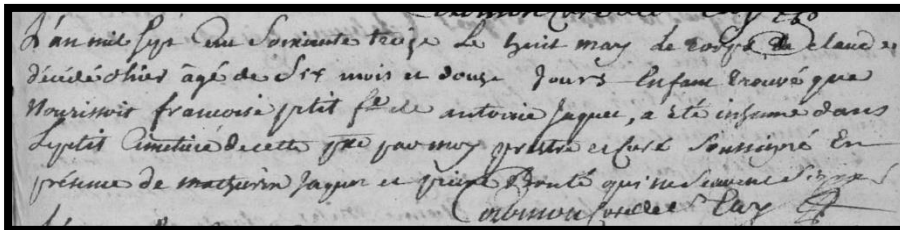 L'an mil sept cent soixante treize le huit may le corps de claude
décédé hier âgé de six mois et douze jours Enfant trouvé que
Nourissoit francoise petit f.e de antoine Jaques, a été inhumé dans
Le petit Cimetière de cette p.sse par moy prestre et Curé soussigné En
présence de mathurin Jaques et pierre qui ne scavent signer
Curé de St Lay